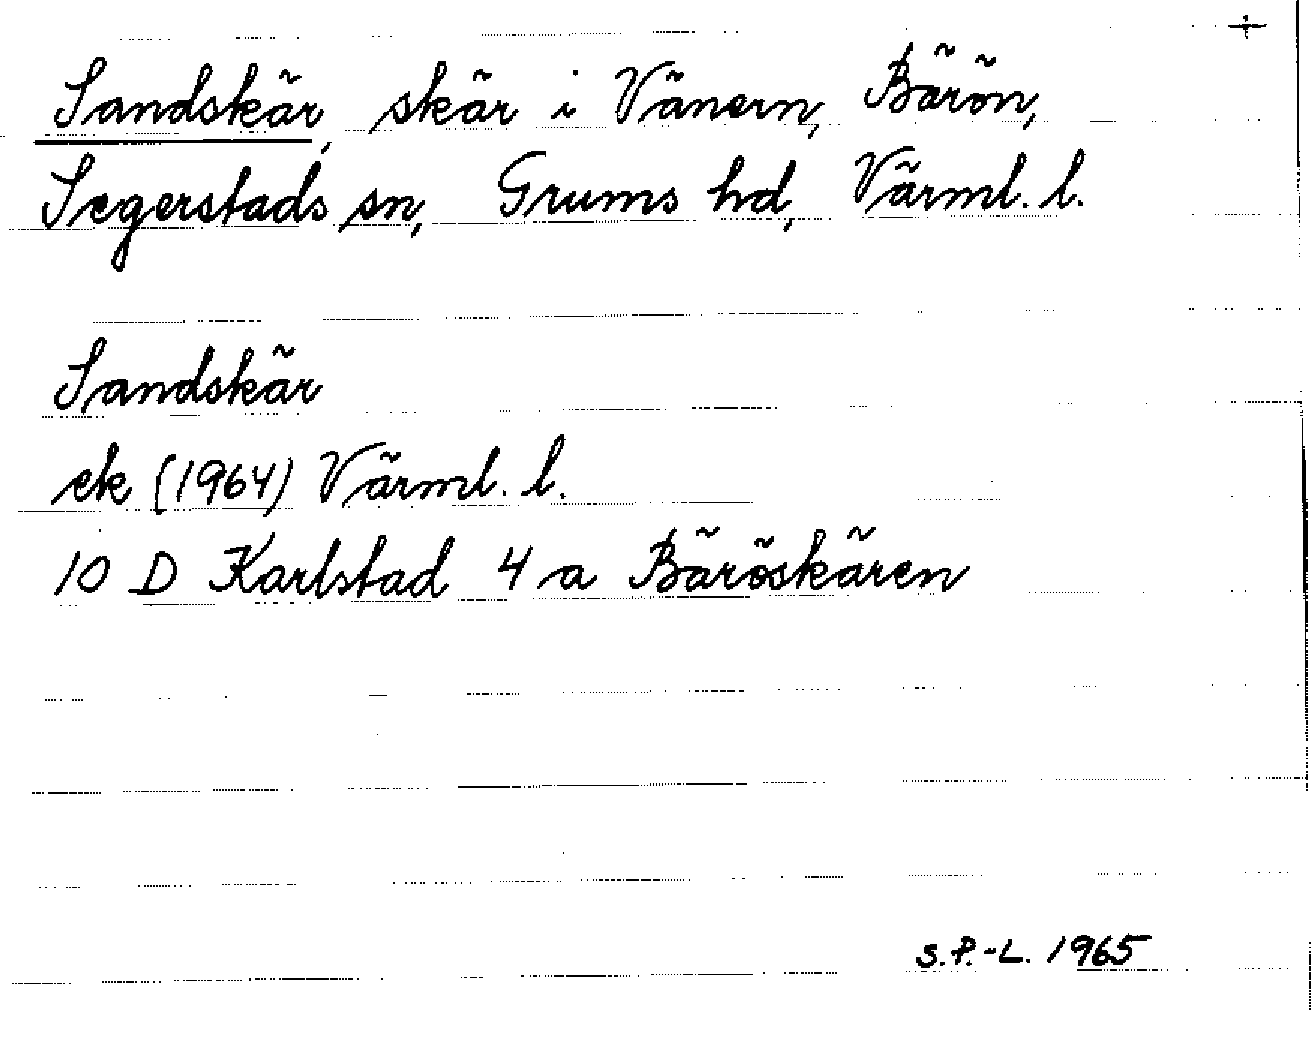 +
Sandskär, skär i Vänern, Bärön,
Segerstads sn, Grums hd, Värml. l.
Sandskär
ek (1964) Värml. l.
10 D Karlstad 4 a Bäröskären
S.P.-L. 1965